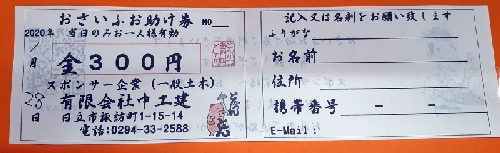 おさいふお助け券 No
2020年 当日のみお一人様有効
1月
金300円
スポンサー企業(一般土木)
28日
有限会社中工建
日立市諏訪町1-15-14
電話:0294-33-2588
記入又は名刺をお願い致します
ふりがな
お名前
住所
携帯番号 - -
E-Mail: